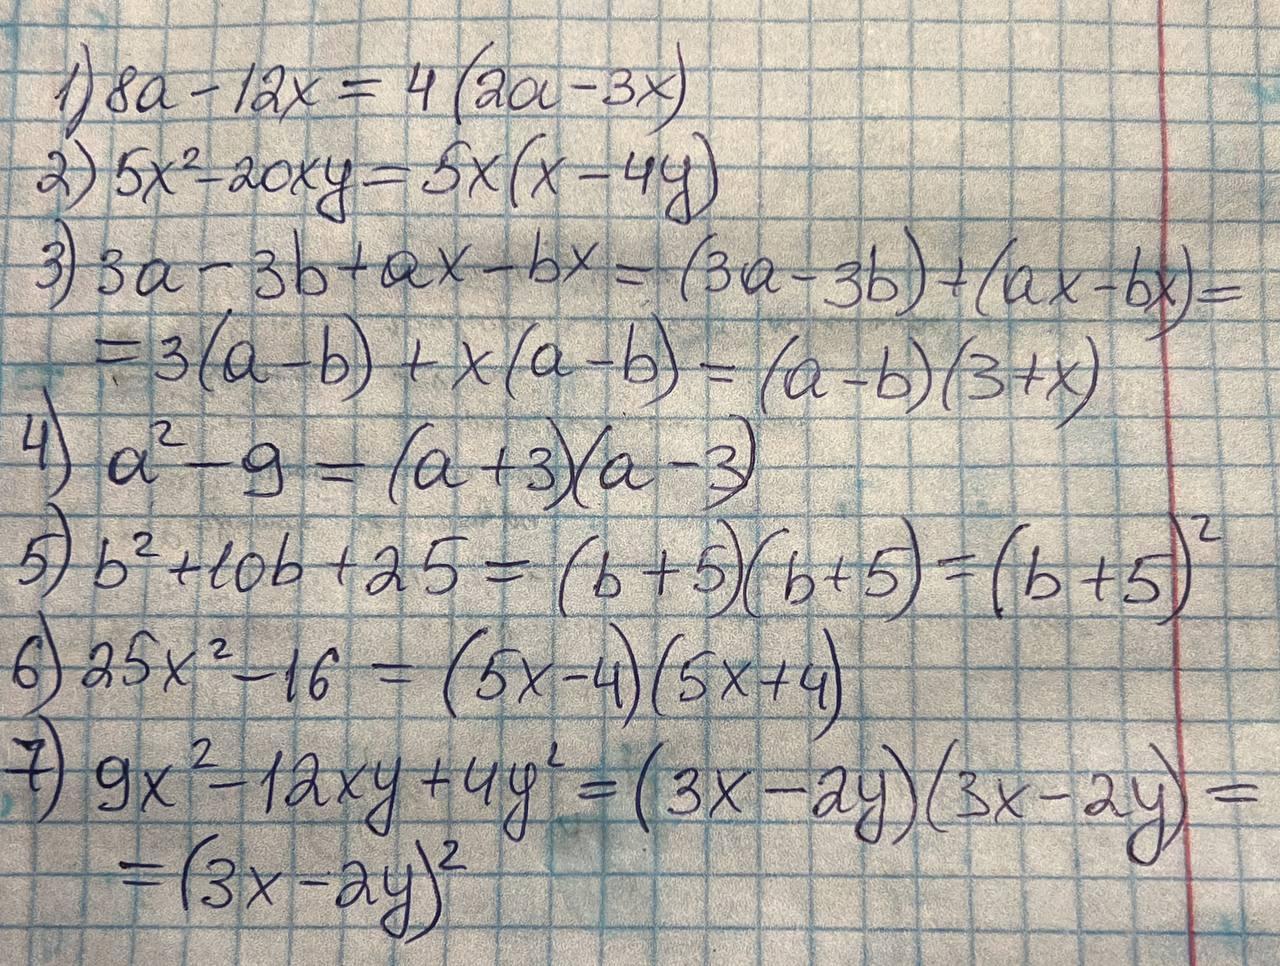 1) 8a - 12x = 4 (2a - 3x)
2) 5x² - 20xy = 5x(x - 4y)
3) 3a - 3b + ax - bx = (3a - 3b) + (ax - bx) =
= 3(a - b) + x(a - b) = (a - b)(3 + x)
4) a² - 9 = (a + 3)(a - 3)
5) b² + 10b + 25 = (b + 5)(b + 5) = (b + 5)²
6) 25x² - 16 = (5x - 4)(5x + 4)
7) 9x² - 12xy + 4y² = (3x - 2y)(3x - 2y) =
= (3x - 2y)²